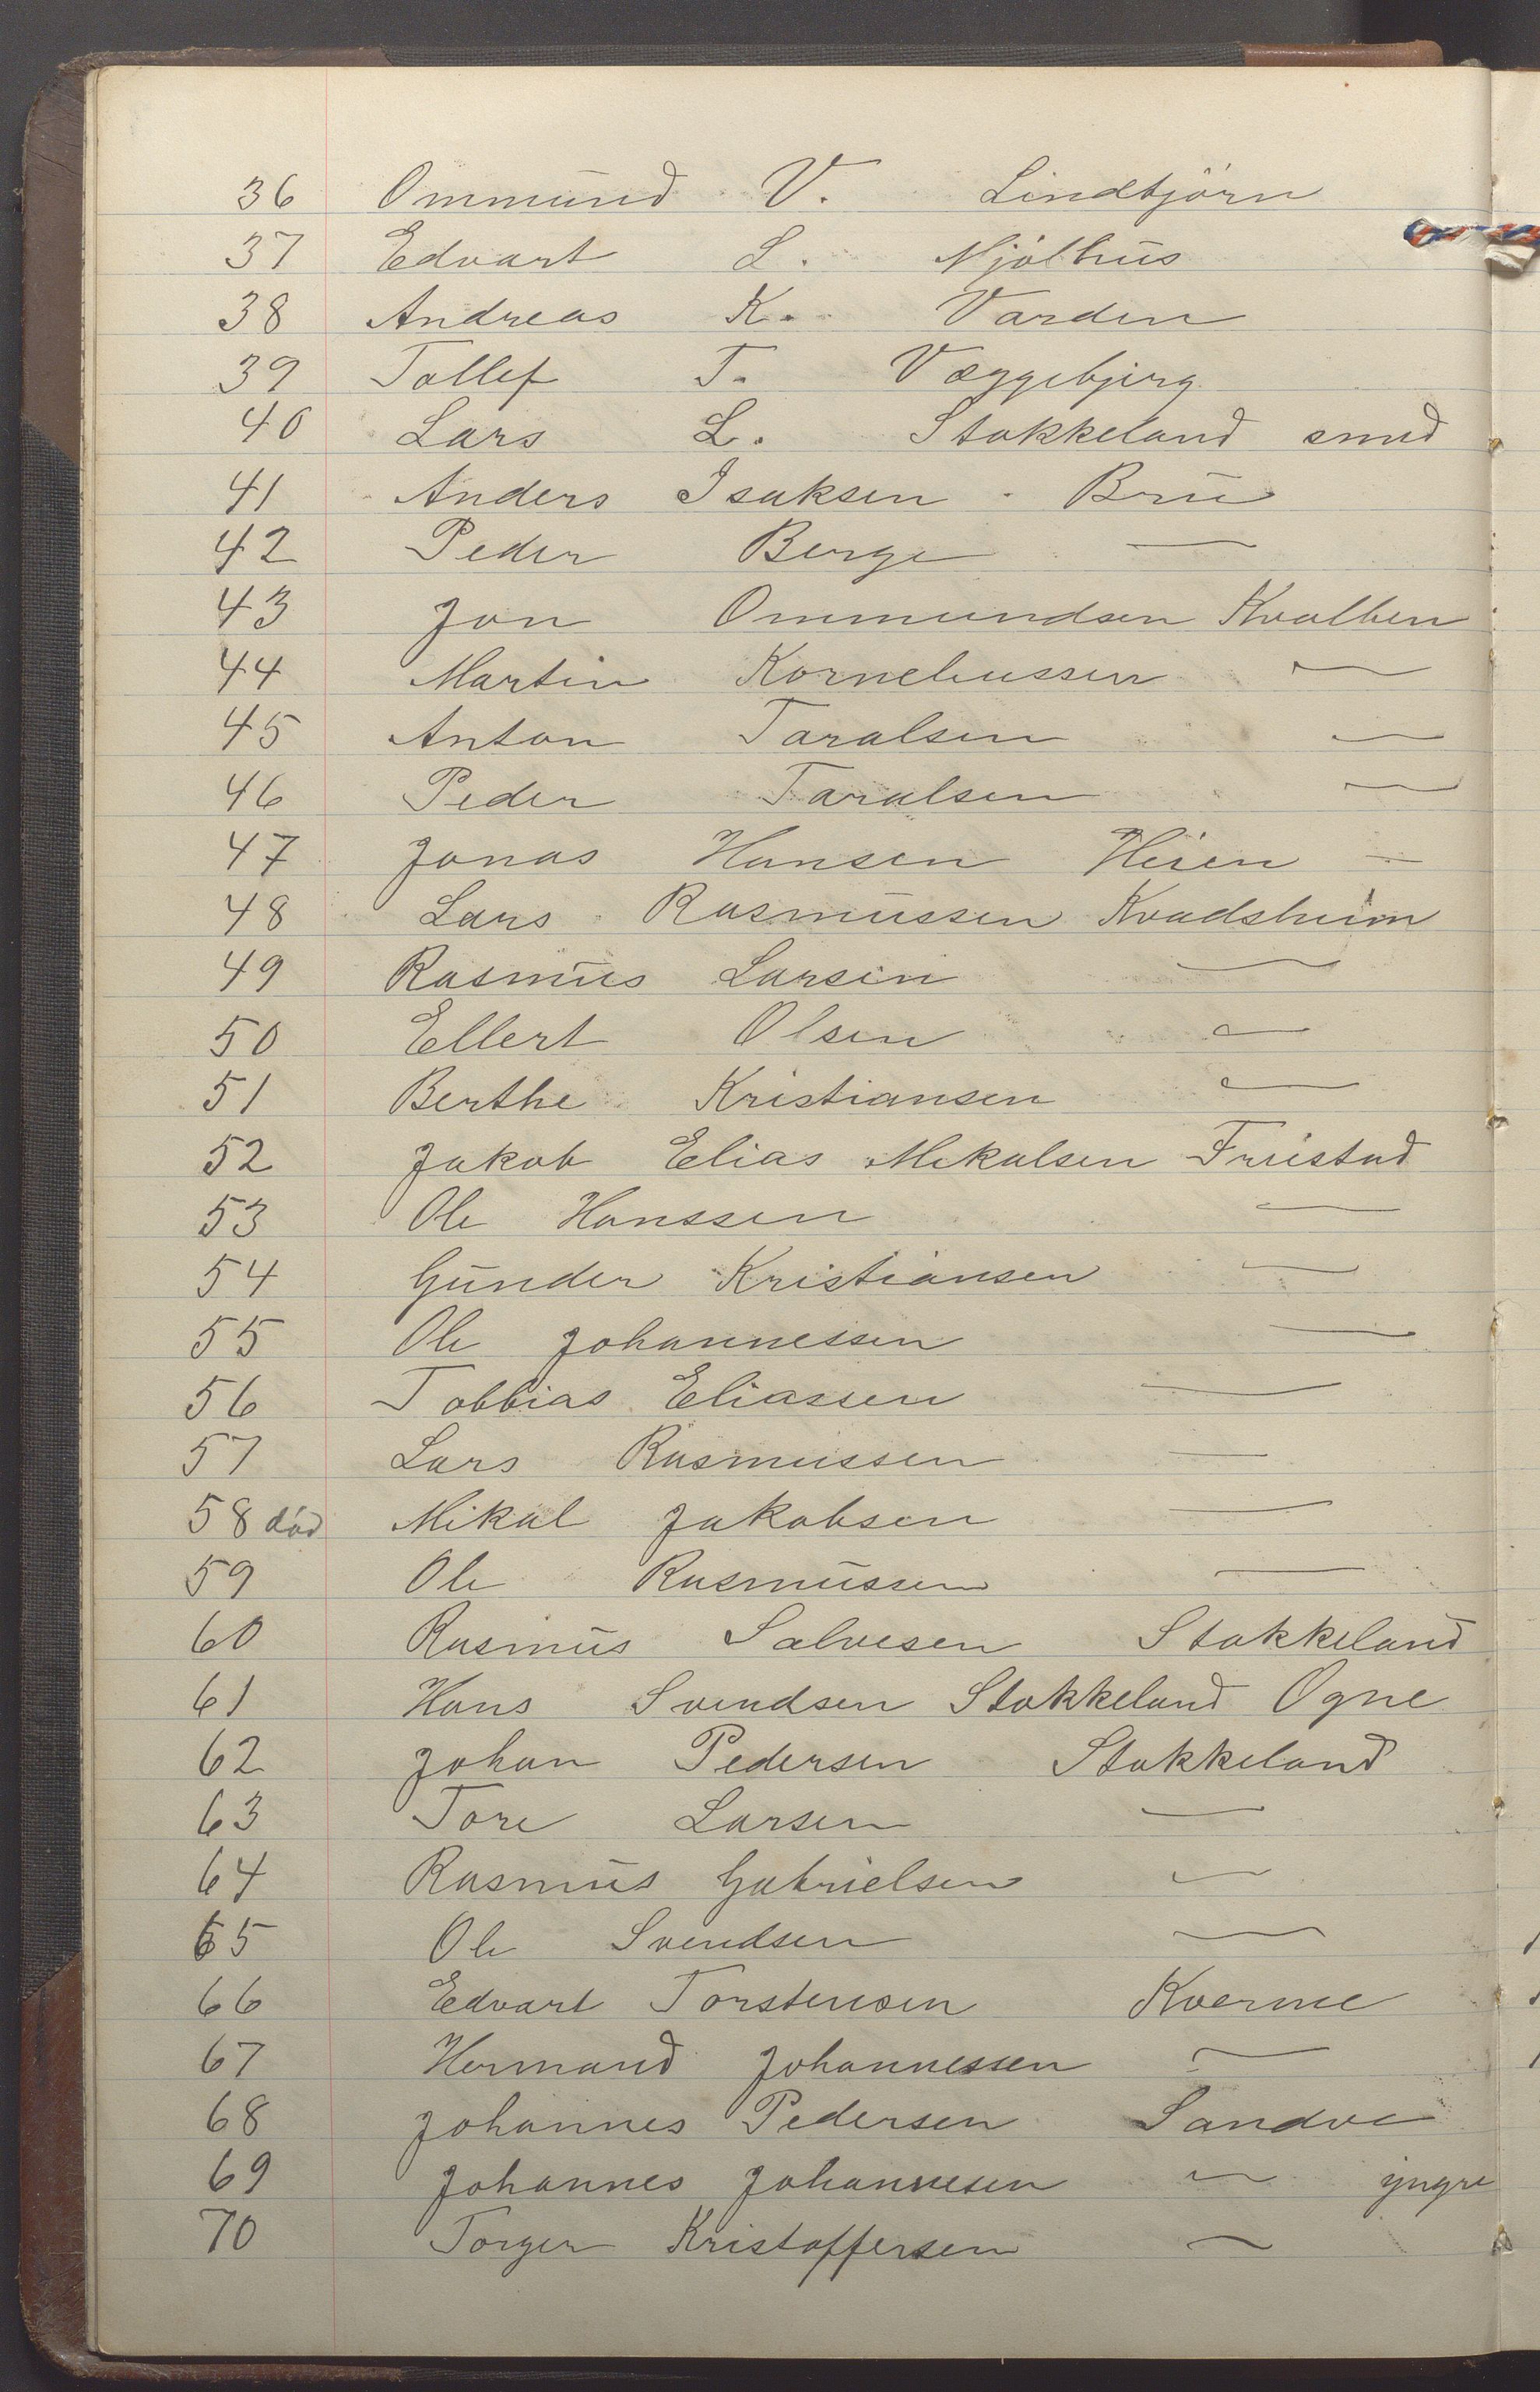 36 Ommund V. Lindtjörn
37 Edvart L. Mjölhus
38 Andreas K. Varden
39 Tollef T. Væggebjerg
40 Lars L. Stokkeland smed
41 Anders Isaksen Bru
42 Peder Berge —
43 Jon Ommundsen Kvalben
44 Martin Korneliussen —
45 Anton Taralsen —
46 Peder Taralsen —
47 Jonas Hansen Heien —
48 Lars Rasmussen Kvadsheim
49 Rasmus Larsen —
50 Ellert Olsen —
51 Berthe Kristiansen —
52 Jakob Elias Mikalsen Fuistad
53 Ole Hanssen —
54 Gunder Kristiansen —
55 Ole Johannessen —
56 Tobbias Eliassen —
57 Lars Rasmussen —
58 død Mikal Jakobsen —
59 Ole Rasmussen —
60 Rasmus Salvesen Stokkeland
61 Hans Svendsen Stokkeland Ogne
62 Johan Pedersen Stokkeland
63 Tore Larsen —
64 Rasmus Gabrielsen —
65 Ole Svendsen —
66 Edvart Torstensen Kverme
67 Hermand Johannessen —
68 Johannes Pedersen Sandve
69 Johannes Johannesen — yngre
70 Torger Kristoffersen —